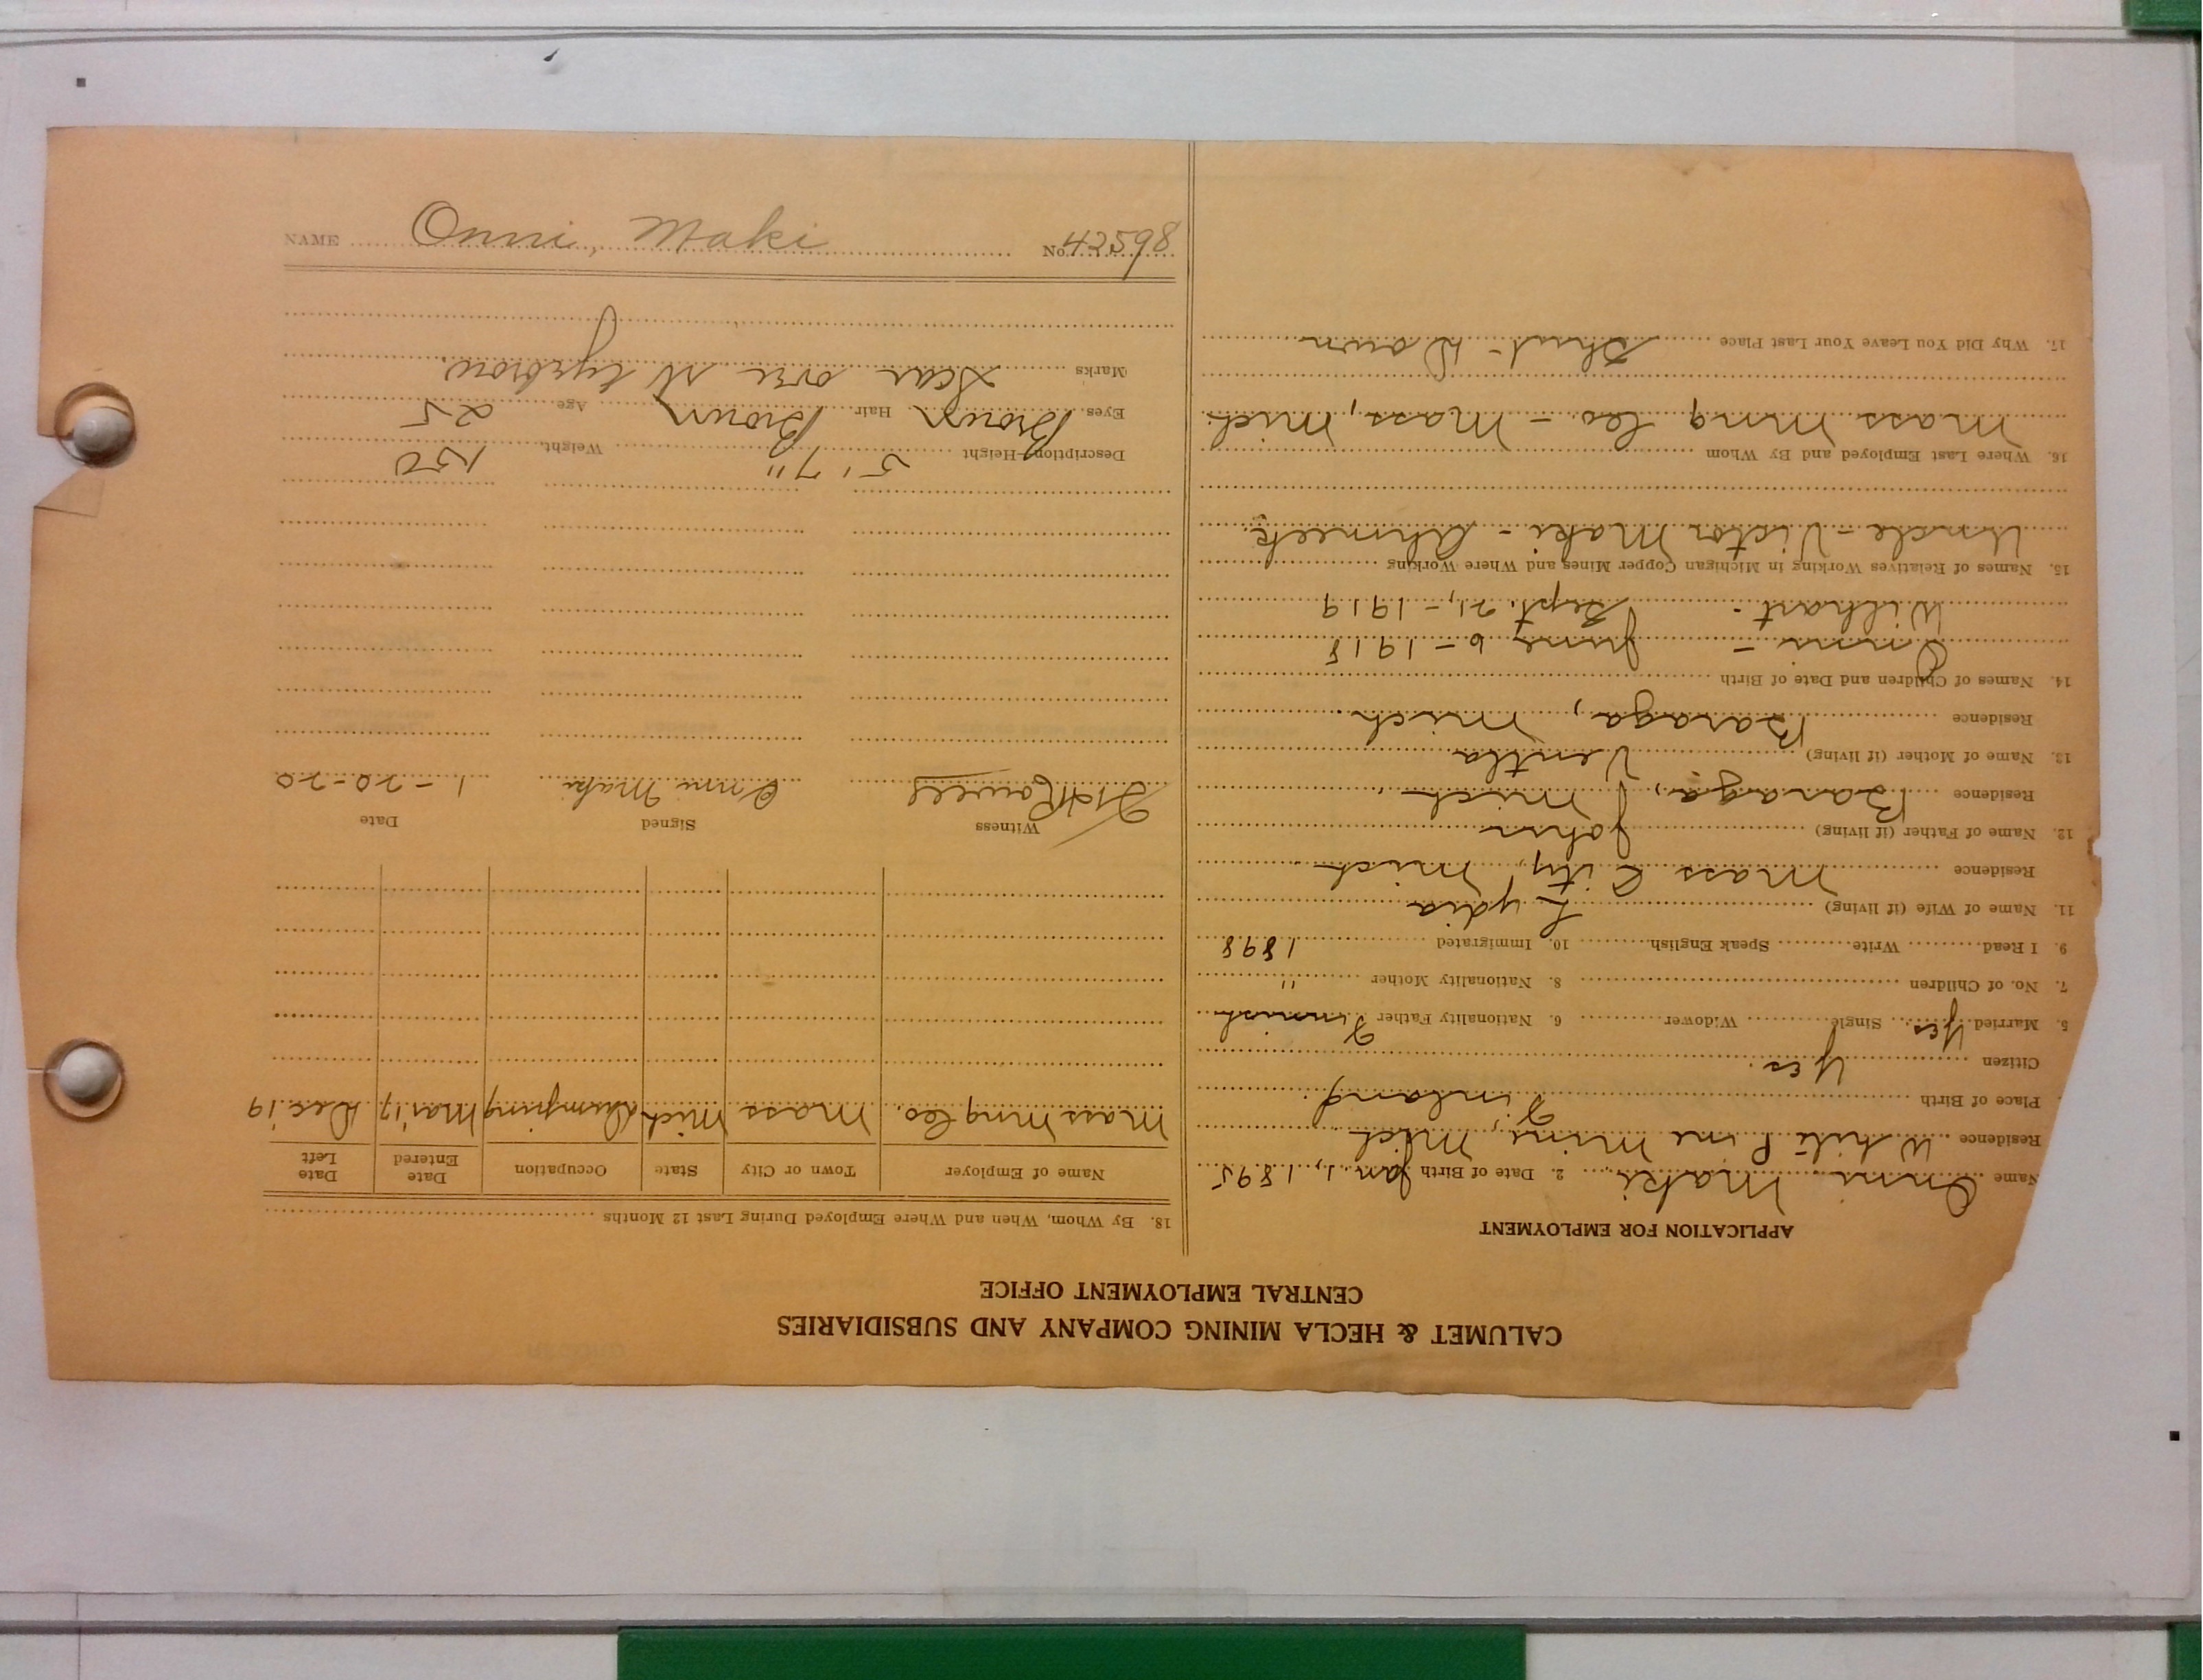 CALUMET & HECLA MINING COMPANY AND SUBSIDIARIES
CENTRAL EMPLOYMENT OFFICE
APPLICATION FOR EMPLOYMENT
Name Onni Maki 2. Date of Birth Jan. 1, 1895
Residence White Pine Mine, Mich
Place of Birth Finland
Citizen Yes.
5. Married Yes Single Widower 6. Nationality Father Finnish
7. No. of Children 8. Nationality Mother "
9. I Read Write Speak English 10. Immigrated 1898
11. Name of Wife (if living) Lydia
Residence Mass City, Mich
12. Name of Father (if living) John
Residence Baraga, Mich.
13. Name of Mother (if living) Ventla
Residence Baraga, Mich.
14. Names of Children and Date of Birth
Onni - June 6 - 1918
Wilhart - Sept. 21, - 1919
15. Names of Relatives Working in Michigan Copper Mines and Where Working
Uncle - Victor Maki - Ahmeek.
16. Where Last Employed and By Whom
Mass Mng Co. - Mass, Mich.
17. Why Did You Leave Your Last Place Shut Down
18. By Whom, When and Where Employed During Last 12 Months
Name of Employer Town or City State Occupation Date Entered Date Left
Mass Mng Co. Mass Mich Dumping Mar 17 Dec. 19
Witness Signed Date
Onni Maki 1-20-20
Description—Height 5' 7" Weight 150
Eyes Brown Hair Brown Age 25
Marks Scar over Eyebrow.
NAME Onni, Maki No. 42598